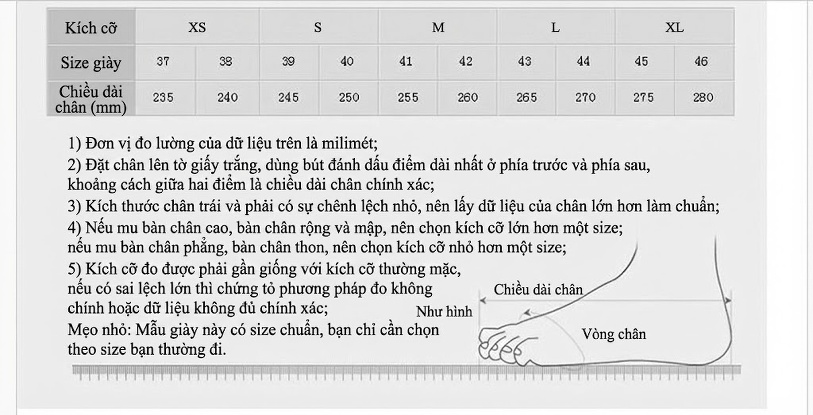 Kích cỡ XS S M L XL
Size giày 37 38 39 40 41 42 43 44 45 46
Chiều dài
chân (mm) 235 240 245 250 255 260 265 270 275 280
1) Đơn vị đo lường của dữ liệu trên là milimét;
2) Đặt chân lên tờ giấy trắng, dùng bút đánh dấu điểm dài nhất ở phía trước và phía sau,
khoảng cách giữa hai điểm là chiều dài chân chính xác;
3) Kích thước chân trái và phải có sự chênh lệch nhỏ, nên lấy dữ liệu của chân lớn hơn làm chuẩn;
4) Nếu mu bàn chân cao, bàn chân rộng và mập, nên chọn kích cỡ lớn hơn một size;
nếu mu bàn chân phẳng, bàn chân thon, nên chọn kích cỡ nhỏ hơn một size;
5) Kích cỡ đo được phải gần giống với kích cỡ thường mặc,
nếu có sai lệch lớn thì chứng tỏ phương pháp đo không
chính hoặc dữ liệu không đủ chính xác;
Mẹo nhỏ: Mẫu giày này có size chuẩn, bạn chỉ cần chọn
theo size bạn thường đi.
Như hình
Chiều dài chân
Vòng chân